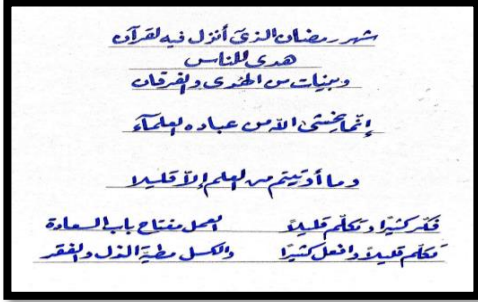 شهر رمضان الذي أنزل فيه القرآن
هدى للناس
وبينات من الهدى والفرقان
إنّما يخشى الله من عباده العلمآء
وما أوتيتم من العلم إلّا قليلا
فكّر كثيرًا وتكلّم قليلاً العمل مفتاح باب السعادة
تكلّم قليلاً وافعل كثيرًا والكسل مطيّة الذل والفقر